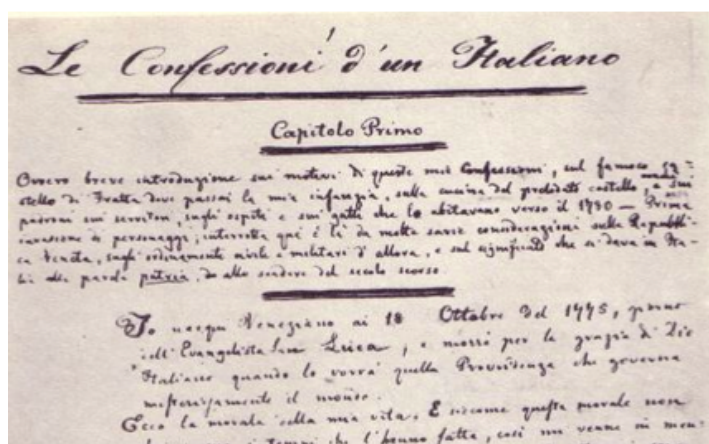 Le Confessioni d'un Italiano
Capitolo Primo
Ovvero breve introduzione sui motivi di queste mie Confessioni, sul famoso ca-
stello di Fratta dove passai la mia infanzia, sulla cucina del prelodato castello, e sui
padroni sui servitori, sugli ospiti e sui gatti che lo abitavano verso il 1780 — Prima
invasione di personaggi, interrotta qui e lì da molte savie considerazioni sulla Repubbli-
ca Veneta, sugli ordinamenti civili e militari d'allora, e sul significato che si dava in Ita-
lia alla parola patria, allo scadere del secolo scorso
Io nacqui Veneziano ai 18 Ottobre del 1775, giorno
dell'Evangelista Luca, e morrò per la grazia di Dio
Italiano quando lo vorrà quella Provvidenza che governa
misteriosamente il mondo.
Ecco la morale della mia vita. E siccome questa morale non
che l'hanno fatta, così mi venne in men-